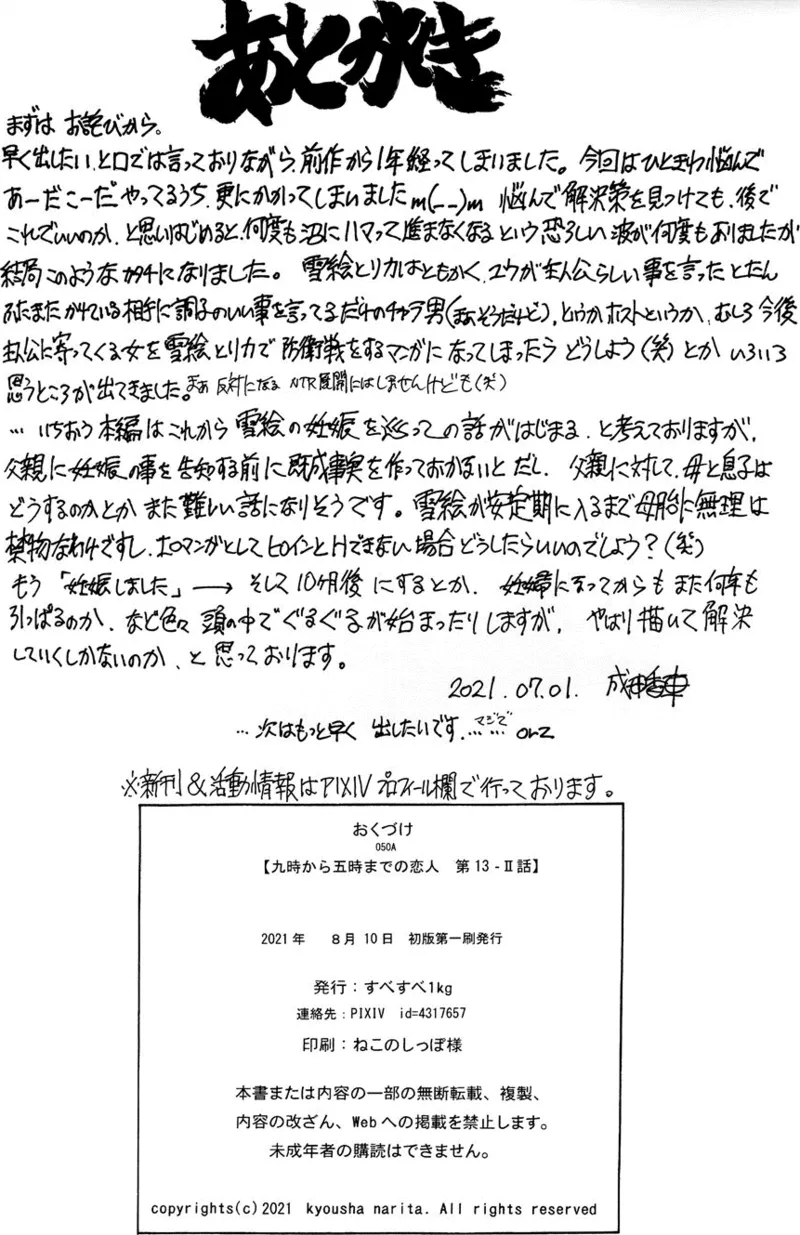 あとがき
まずは お詫びから。
早く出したい、と口では言っておりながら、前作から1年経ってしまいました。今回はひときわ悩んで
あーだこーだやってるうち、更にかかってしまいましたm(__)m 悩んで解決策を見つけても、後で
これでいいのか、と思いはじめると、何度も沼にハマって進まなくなるという恐ろしい波が何度もありましたが
結局このようなカタチになりました。 雪絵とリカはともかく、ユウが主人公らしい事を言ったとたん
ふたまたかけている相手に調子のいい事を言ってるだけのチャラ男(まぁそうだけど)、というかホストというか、むしろ今後
主人公に寄ってくる女を雪絵とリカで防衛戦をするマンガになってしまったらどうしよう(笑)とか いろいろ
思うところが出てきました。まぁ反対になる NTR展開にはしませんけども(笑)
… いちおう本編はこれから雪絵の妊娠を巡っての話がはじまる、と考えておりますが、
父親に妊娠の事を告知する前に既成事実を作っておかないとだし、父親に対して、母と息子は
どうするのかとか また難しい話になりそうです。雪絵が安定期に入るまで母胎に無理は
禁物なわけですし、エロマンガとしてヒロインとHできない場合どうしたらいいのでしょう?(笑)
もう「妊娠しました」→ そして10ヶ月後 にするとか、妊婦になってからもまた何年も
引っぱるのか、など色々 頭の中でぐるぐるが始まったりしますが、やはり描いて解決
していくしかないのか、と思っております。
2021.07.01. 成田香車
… 次はもっと早く 出したいです、…マジで… orz
※新刊&活動情報はPIXIVプロフィール欄で行っております。
おくづけ
050A
【九時から五時までの恋人 第13-Ⅱ話】
2021年 8月10日 初版第一刷発行
発行:すべすべ1kg
連絡先:PIXIV id=4317657
印刷:ねこのしっぽ様
本書または内容の一部の無断転載、複製、
内容の改ざん、Webへの掲載を禁止します。
未成年者の購読はできません。
copyrights(c)2021 kyousha narita. All rights reserved